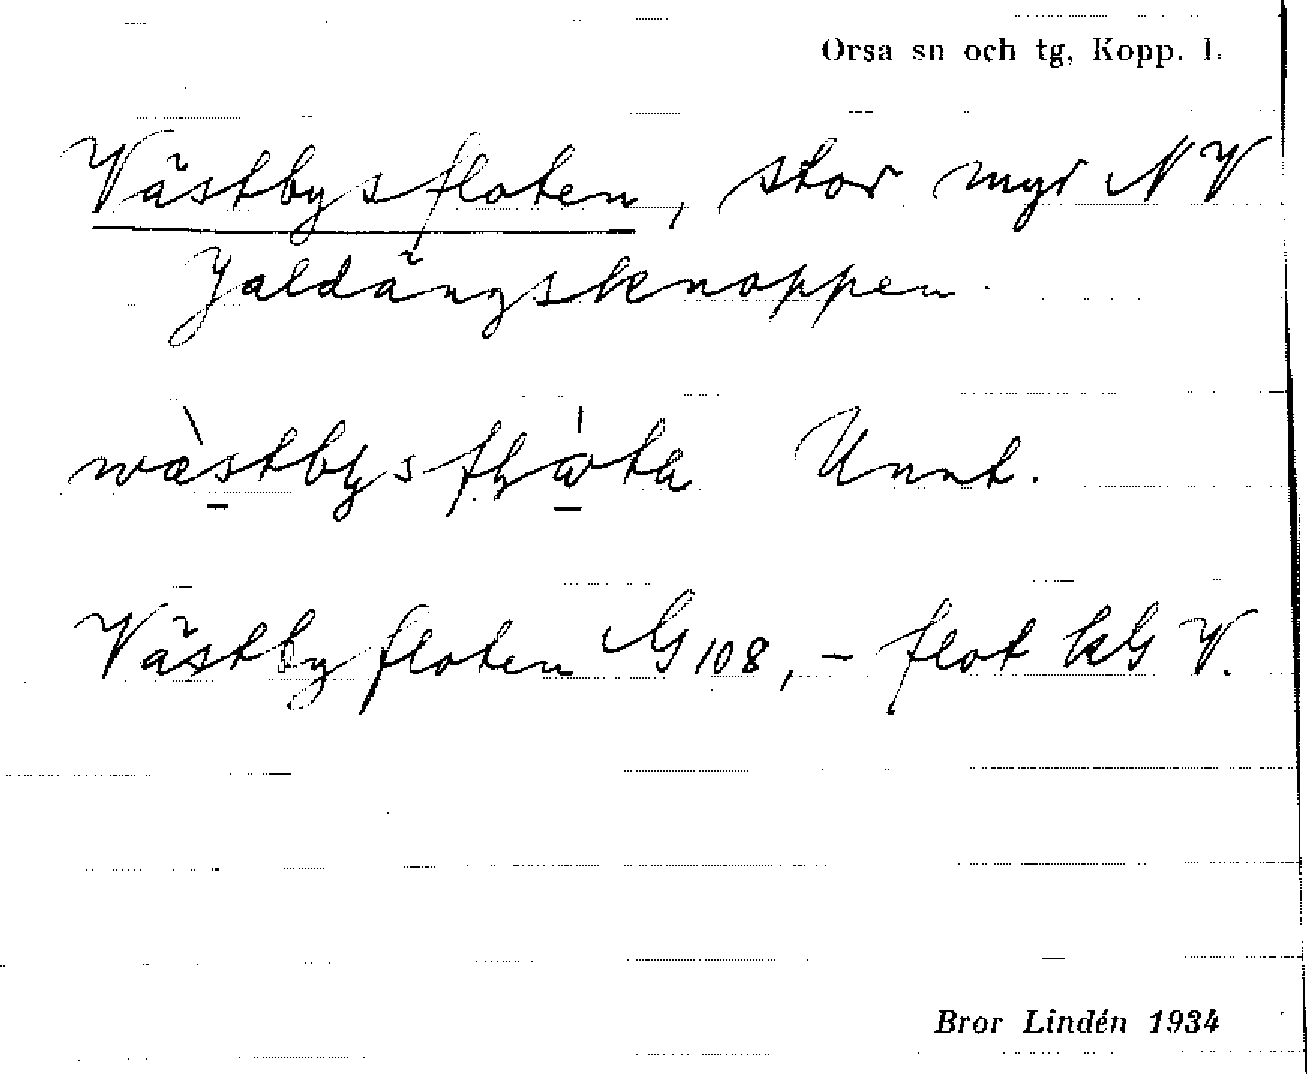 Orsa sn och tg, Kopp. l.
Västbysfloten, stor myr NV
Jaldängsknoppen.
Unnt.
Västbyfloten G 108, – flot kG V.
Bror Lindén 1934